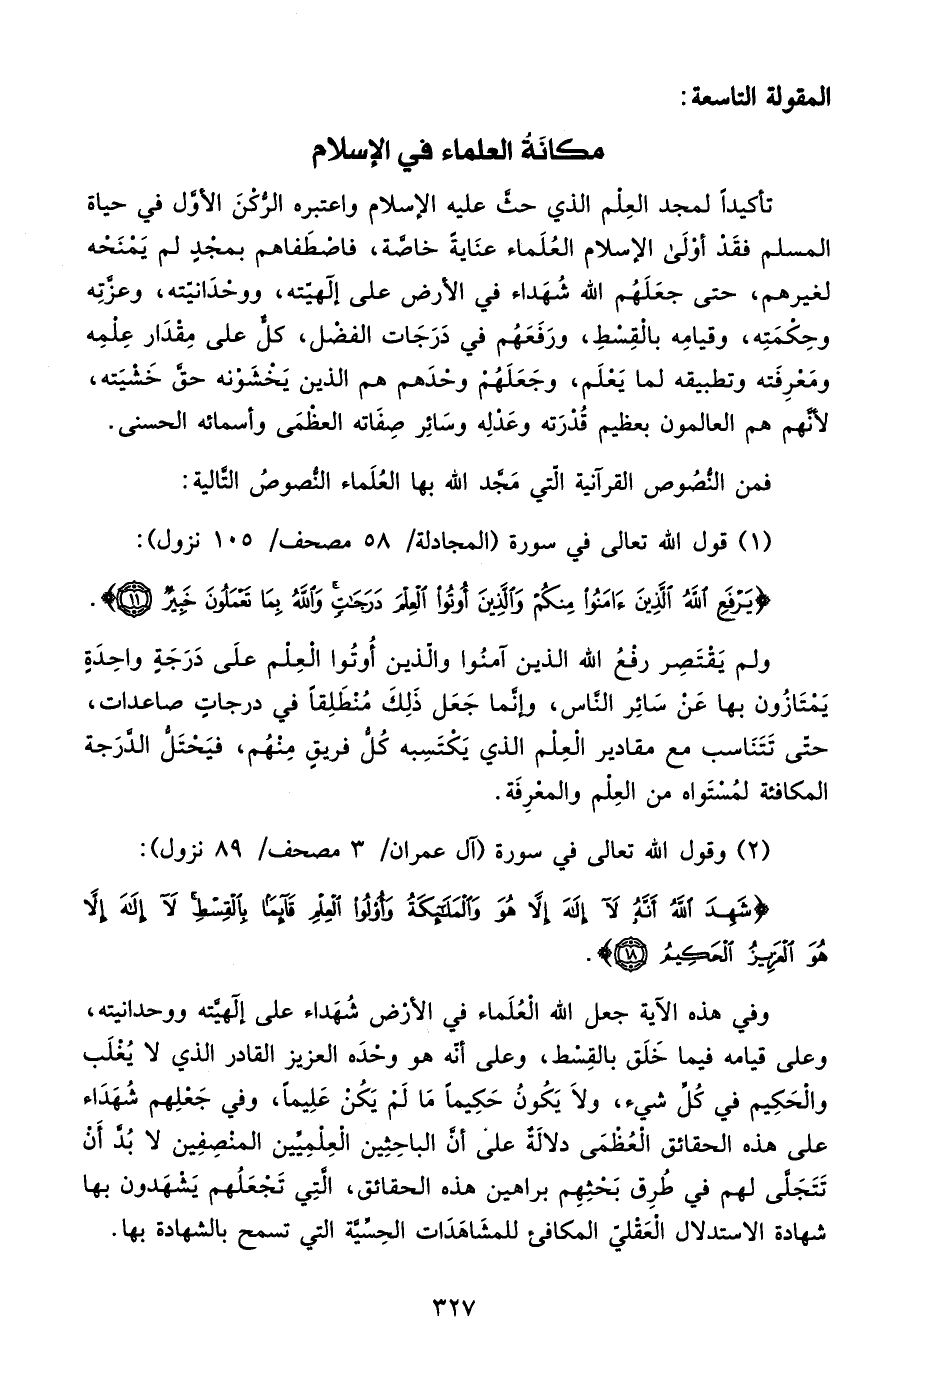 المقولة التاسعة:
مكانَةُ العلماء في الإسلام
تأكيداً لمجد العِلْم الذي حثَّ عليه الإسلام واعتبره الرُّكْنَ الأوَّل في حياة
المسلم فقَدْ أوْلَىٰ الإسلام العُلَماء عنَايةً خاصَّة، فاصْطَفاهم بمجْدٍ لم يَمْنَحْه
لغيرهم، حتى جعَلَهُم الله شُهَداء في الأرض على إلَهيّته، ووحْدَانيّته، وعزَّتِه
وحِكْمَتِه، وقيامِه بالْقِسْطِ، ورفَعَهُم في دَرَجَات الفضْل، كلٌّ على مِقْدَار عِلْمِه
ومَعْرِفَته وتطبيقه لما يَعْلَم، وجَعَلَهُمْ وحْدَهم هم الذين يَخْشَوْنه حقَّ خَشْيَته،
لأنَّهم هم العالمون بعظيم قُدْرَته وعَدْلِه وسَائِر صِفَاته العظْمَى وأسمائه الحسنى.
فمن النُّصُوص القرآنية الّتي مَجَّد الله بها العُلَماء النُّصوصُ التَّالية:
(١) قول الله تعالى في سورة (المجادلة/ ٥٨ مصحف/ ١٠٥ نزول):
﴿يَرْفَعِ ٱللَّهُ ٱلَّذِينَ ءَامَنُوا۟ مِنكُمْ وَٱلَّذِينَ أُوتُوا۟ ٱلْعِلْمَ دَرَجَٰتٍۢ ۚ وَٱللَّهُ بِمَا تَعْمَلُونَ خَبِيرٌ ۝١١﴾.
ولم يَقْتَصِر رفْعُ الله الذين آمنُوا والّذين أُوتُوا الْعِلْم علَى دَرَجَةٍ واحِدَةٍ
يَمْتَازُون بها عَنْ سَائِر النَّاس، وإنَّما جَعَل ذَلِكَ مُنْطَلِقاً في درجاتٍ صاعدات،
حتّى تَتَنَاسب مع مقادير الْعِلْم الذي يَكْتَسِبه كُلُّ فريقٍ مِنْهُم، فيَحْتَلُّ الدَّرَجة
المكافئة لمُسْتَواه من العِلْم والمعْرِفَة.
(٢) وقول الله تعالى في سورة (آل عمران/ ٣ مصحف/ ٨٩ نزول):
﴿شَهِدَ ٱللَّهُ أَنَّهُۥ لَآ إِلَٰهَ إِلَّا هُوَ وَٱلْمَلَٰٓئِكَةُ وَأُو۟لُوا۟ ٱلْعِلْمِ قَآئِمًۢا بِٱلْقِسْطِ ۚ لَآ إِلَٰهَ إِلَّا
هُوَ ٱلْعَزِيزُ ٱلْحَكِيمُ ۝١٨﴾.
وفي هذه الآية جعل الله الْعُلَماء في الأرْض شُهَداء على إلَهيَّته ووحدانيته،
وعلى قيامه فيما خَلَق بالقِسْط، وعلى أنّه هو وحْدَه العزيز القادر الذي لا يُغْلَب
والْحَكِيم في كُلِّ شيء، ولاَ يَكُونُ حَكِيماً مَا لَمْ يَكُنْ عَلِيماً، وفي جَعْلِهم شُهَدَاء
على هذه الحقائق الْعُظْمَى دلالَةٌ علىٰ أنَّ الباحِثِين الْعِلْمِيِّين المنْصِفِين لا بُدَّ أنْ
تَتَجَلَّى لهم في طُرِق بَحْثِهِم براهين هذه الحقائق، الَّتِي تَجْعَلُهم يَشْهَدون بها
شهادة الاستدلال الْعَقْليّ المكافئ للمشَاهَدَات الحِسِّيَّة التي تسمح بالشهادة بها.
٣٢٧